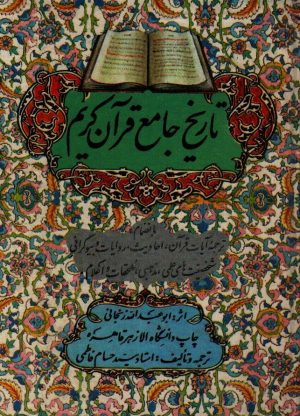 تاریخ جامع قرآن کریم
بانضمام
ترجمه آیات قرآن، احادیث، روایات و بیوگرافی
شخصیت‌های علمی، مذهبی، طبقات و اعلام
اثر: ابوعبدالله زنجانی
چاپ دانشگاه الازهر قاهره
ترجمه و تألیف: استاد سید حسام فاطمی